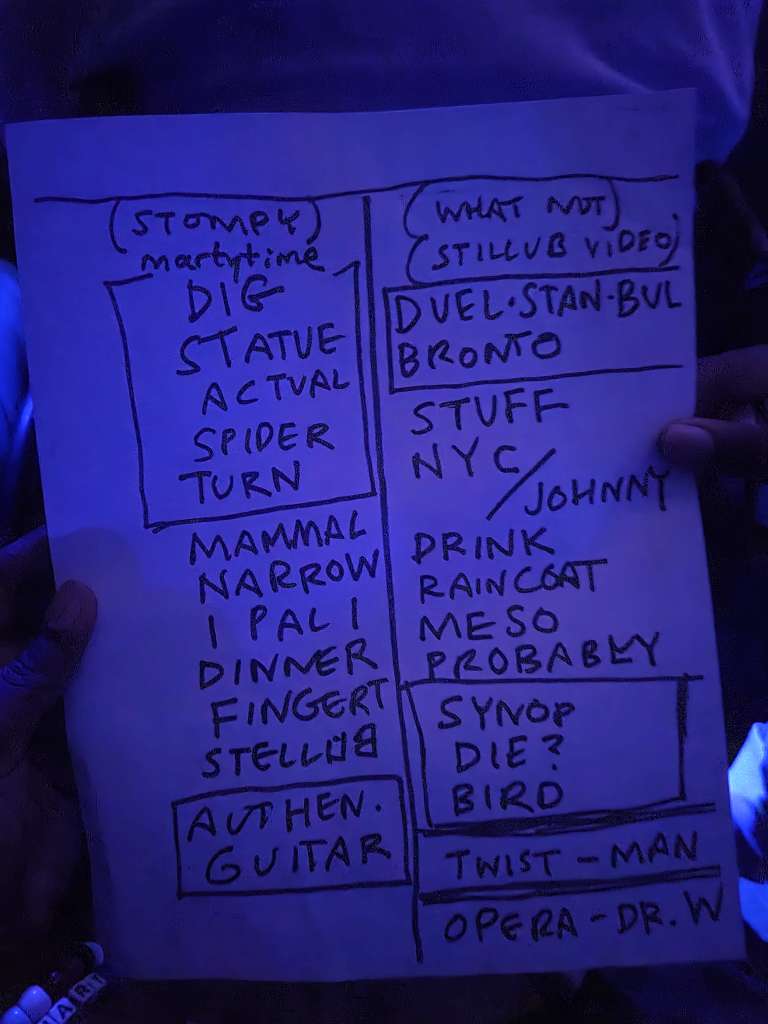 (STOMPY)
martytime
DIG
STATUE
ACTUAL
SPIDER
TURN
MAMMAL
NARROW
I PAL I
DINNER
FINGERT
STELLUB
AUTHEN.
GUITAR
(WHAT NOT)
(STILLUB VIDEO)
DUEL·STAN·BUL
BRONTO
STUFF
NYC
/JOHNNY
DRINK
RAINCOAT
MESO
PROBABLY
SYNOP
DIE?
BIRD
TWIST – MAN
OPERA – DR. W
ART